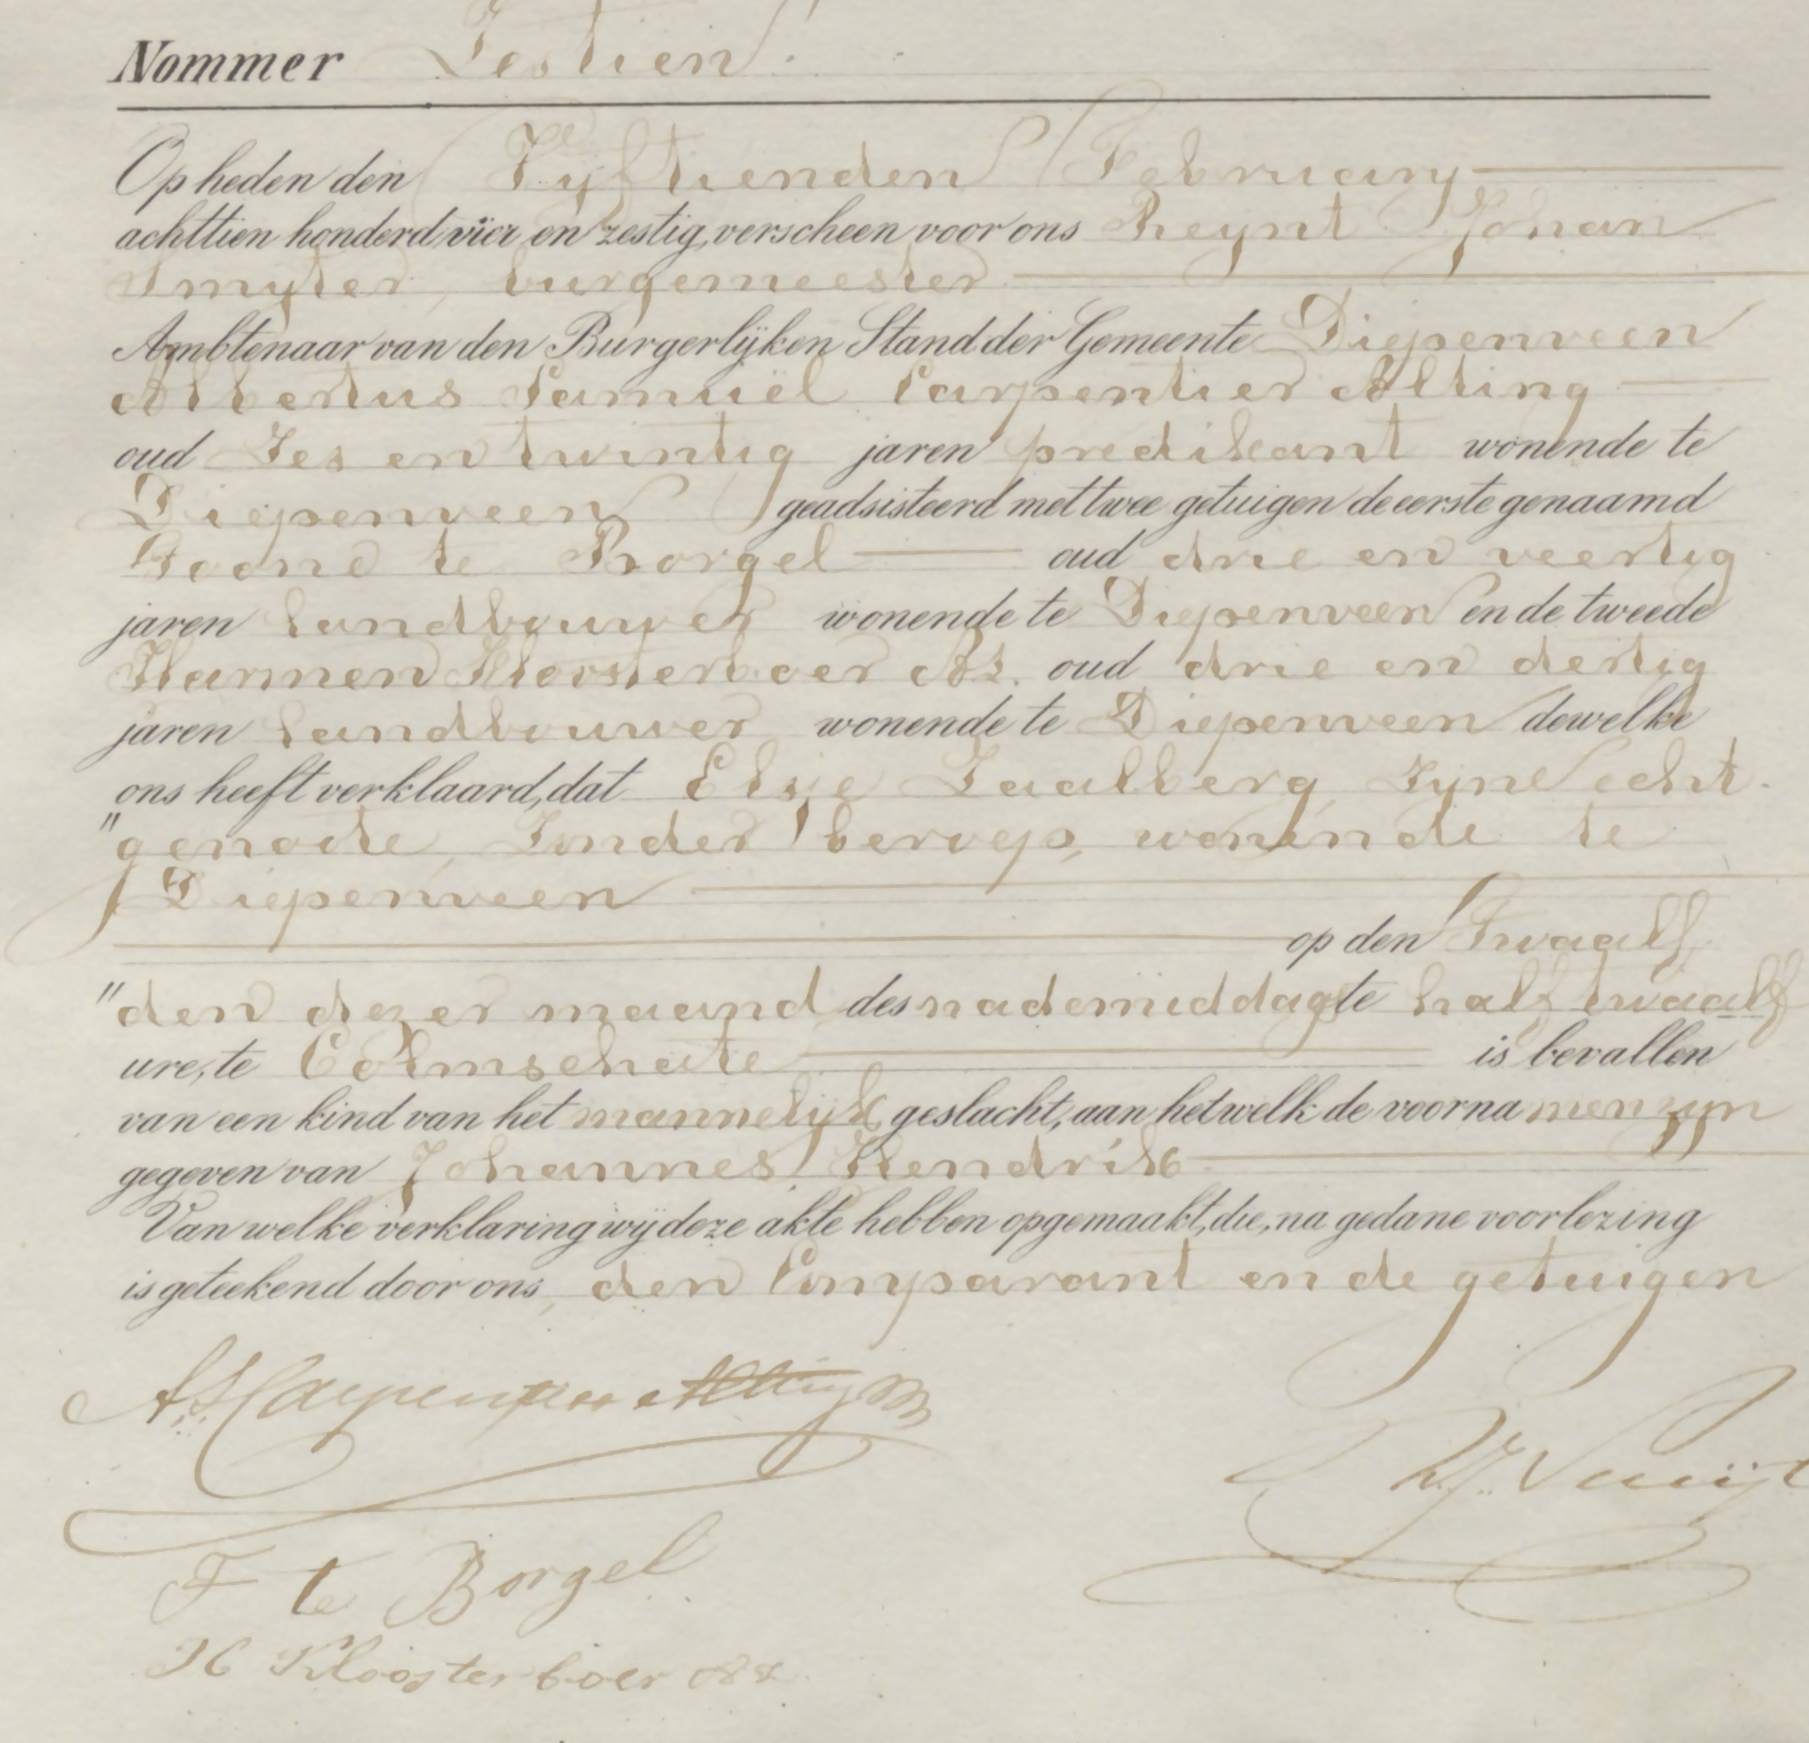 Nommer Zestien.
Op heden den Vyftienden February
achttien honderd vier en zestig, verscheen voor ons Reynt Johan
Smyter, burgemeester
Ambtenaar van den Burgerlijken Stand der Gemeente Diepenveen
Albertus Samuël Carpentier Alting
oud Zes en twintig jaren predikant wonende te
Diepenveen geadsisteerd met twee getuigen de eerste genaamd
te Borgel oud drie en veertig
jaren landbouwer wonende te Diepenveen en de tweede
Harmen Kloosterboer oud drie en dertig
jaren landbouwer wonende te Diepenveen dewelke
ons heeft verklaard, dat Elsje Zaalberg, zyne echt-
"genoote, zonder beroep, wonende te
Diepenveen
op den Twaalf
"den dezer maand des nademiddags te half twaalf
ure, te Colmschate is bevallen
van een kind van het mannelijk geslacht, aan hetwelk de voornamen zyn
gegeven van Johannes Hendrik
Van welke verklaring wij deze akte hebben opgemaakt, die, na gedane voorlezing
is geteekend door ons, den Comparant en de getuigen
A. S. Carpentier Alting
R. J.
F te Borgel
H Kloosterboer